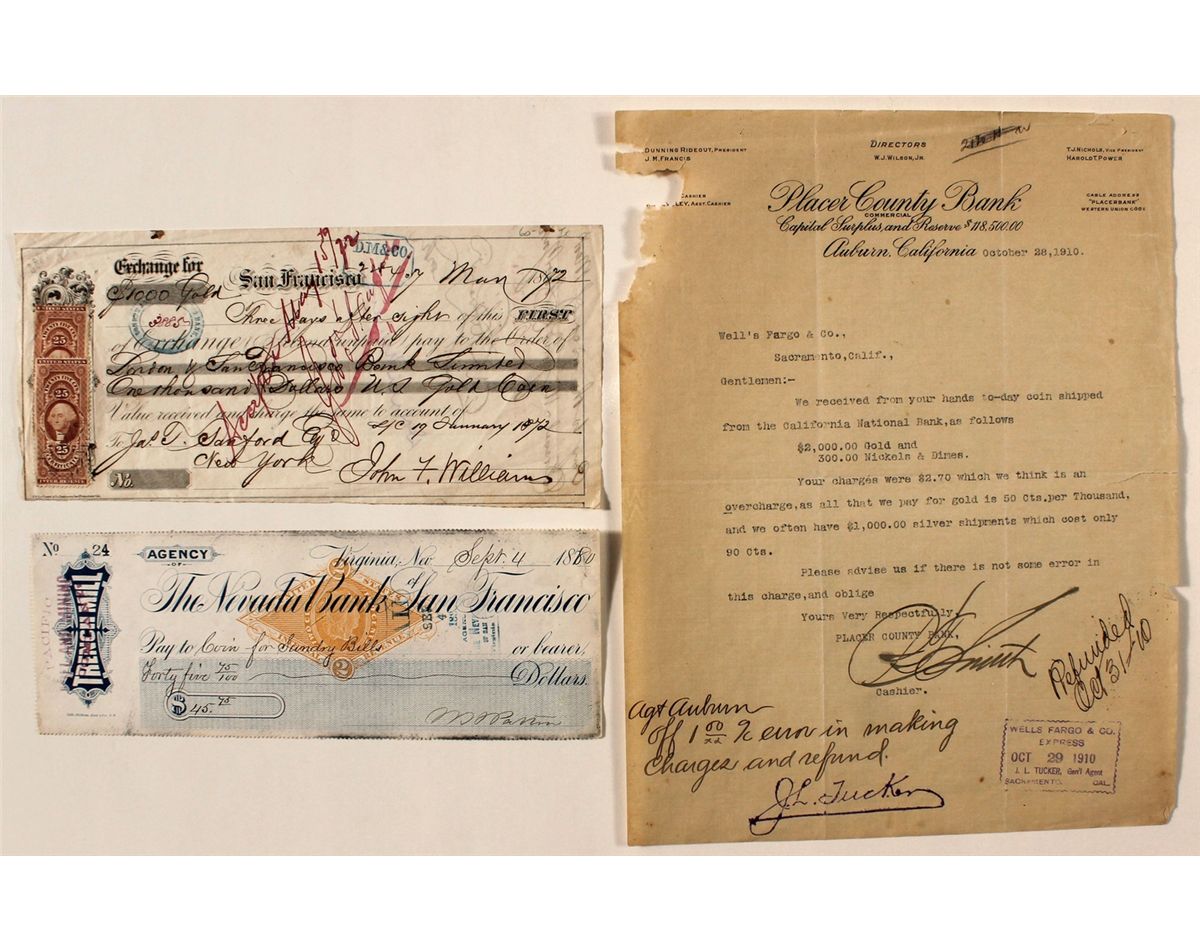 Exchange for San Francisco
D.M&CO.
$1000 Gold
May 1872
Three days after sight of this FIRST
of Exchange
unpaid pay to the Order of
London & San Francisco Bank Limited
One thousand Dollars U.S. Gold Coin
Value received and charge the same to account of
L/C 19 January 1872
To Jas. T. Sanford Esq
New York
John F. Williams
No.
25
25
No 24
AGENCY
OF
Virginia, Nev Sept. 4 1880
The Nevada Bank of San Francisco
TRENCH MILL
Pay to Coin for Sundry Bills or bearer,
Forty five 75/100 Dollars.
$ 45.75
DUNNING RIDEOUT, PRESIDENT
J.M. FRANCIS
DIRECTORS
W.J. WILSON, JR.
T.J. NICHOLS, VICE PRESIDENT
HAROLD T. POWER
CASHIER
LEY, ASST. CASHIER
CABLE ADDRESS
"PLACERBANK"
WESTERN UNION CODE
Placer County Bank
COMMERCIAL
Capital Surplus, and Reserve $118,500.00
Auburn, California October 28,1910.
Well's Fargo & Co.,
Sacramento,Calif.,
Gentlemen:-
We received from your hands to-day coin shipped
from the California National Bank,as follows
$2,000.00 Gold and
300.00 Nickels & Dimes.
Your charges were $2.70 which we think is an
overcharge,as all that we pay for gold is 50 Cts.per Thousand,
and we often have $1,000.00 silver shipments which cost only
90 Cts.
Please advise us if there is not some error in
this charge,and oblige
Yours Very Respectfully,
PLACER COUNTY BANK,
Cashier.
Refunded
Oct 31-10
Agt Auburn
off 1 00/xx % error in making
charges and refund.
J.L. Tucker
WELLS FARGO & CO.
EXPRESS
OCT 29 1910
J. L. TUCKER, Gen'l Agent
SACRAMENTO, CAL.